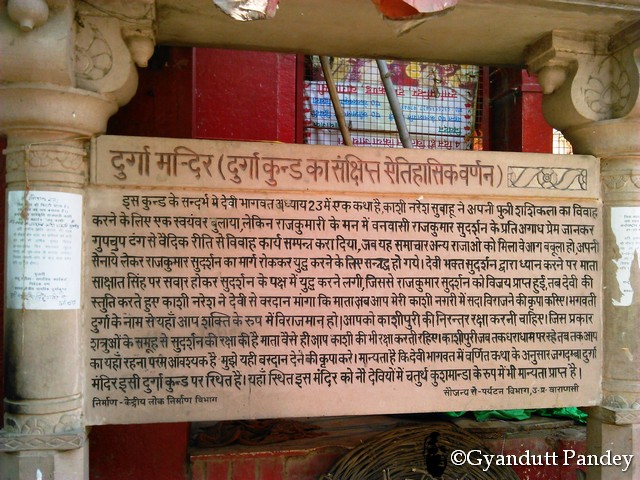 दुर्गा मन्दिर (दुर्गा कुन्ड का संक्षिप्त ऐतिहासिक वर्णन)
इस कुन्ड के सन्दर्भ मे देवी भागवत अध्याय 23 में एक कथा है, काशी नरेश सुबाहू ने अपनी पुत्री शशिकला का विवाह
करने के लिए एक स्वयंवर बुलाया, लेकिन राजकुमारी के मन में वनवासी राजकुमार सुदर्शन के प्रति अगाध प्रेम जानकर
गुपचुप ढंग से वैदिक रीति से विवाह कार्य सम्पन्न करा दिया, जब यह समाचार अन्य राजाओ को मिला वे आग बबूला हो, अपनी
सेनाये लेकर राजकुमार सुदर्शन का मार्ग रोककर युद्ध करने के लिए सन्नद्ध हो गये। देवी भक्त सुदर्शन द्वारा ध्यान करने पर माता
साक्षात सिंह पर सवार होकर सुदर्शन के पक्ष में युद्ध करने लगी, जिससे राजकुमार सुदर्शन को विजय प्राप्त हुई, तब देवी की
स्तुति करते हुए काशी नरेश ने देवी से वरदान मांगा कि माता अब आप मेरी काशी नगरी में सदा विराजने की कृपा करिए। भगवती
दुर्गा के नाम से यहाँ आप शक्ति के रूप में विराजमान हो। आपको काशीपुरी की निरन्तर रक्षा करनी चाहिए। जिस प्रकार
शत्रुओं के समूह से सुदर्शन की रक्षा की है माता वैसे ही आप काशी की भी रक्षा करती रहिए। काशीपुरी जब तक धराधाम पर रहे तब तक आप
का यहाँ रहना परम आवश्यक है मुझे यही वरदान देने की कृपा करे। मान्यता है कि देवी भागवत में वर्णित कथा के अनुसार जगदम्बा दुर्गा
मंदिर इसी दुर्गा कुन्ड पर स्थित है। यहाँ स्थित इस मंदिर को नौ देवियों में चतुर्थ कुशमान्डा के रूप में भी मान्यता प्राप्त है।
निर्माण-केन्द्रीय लोक निर्माण विभाग
सौजन्य से-पर्यटन विभाग, उ.प्र. वाराणसी
©Gyandutt Pandey